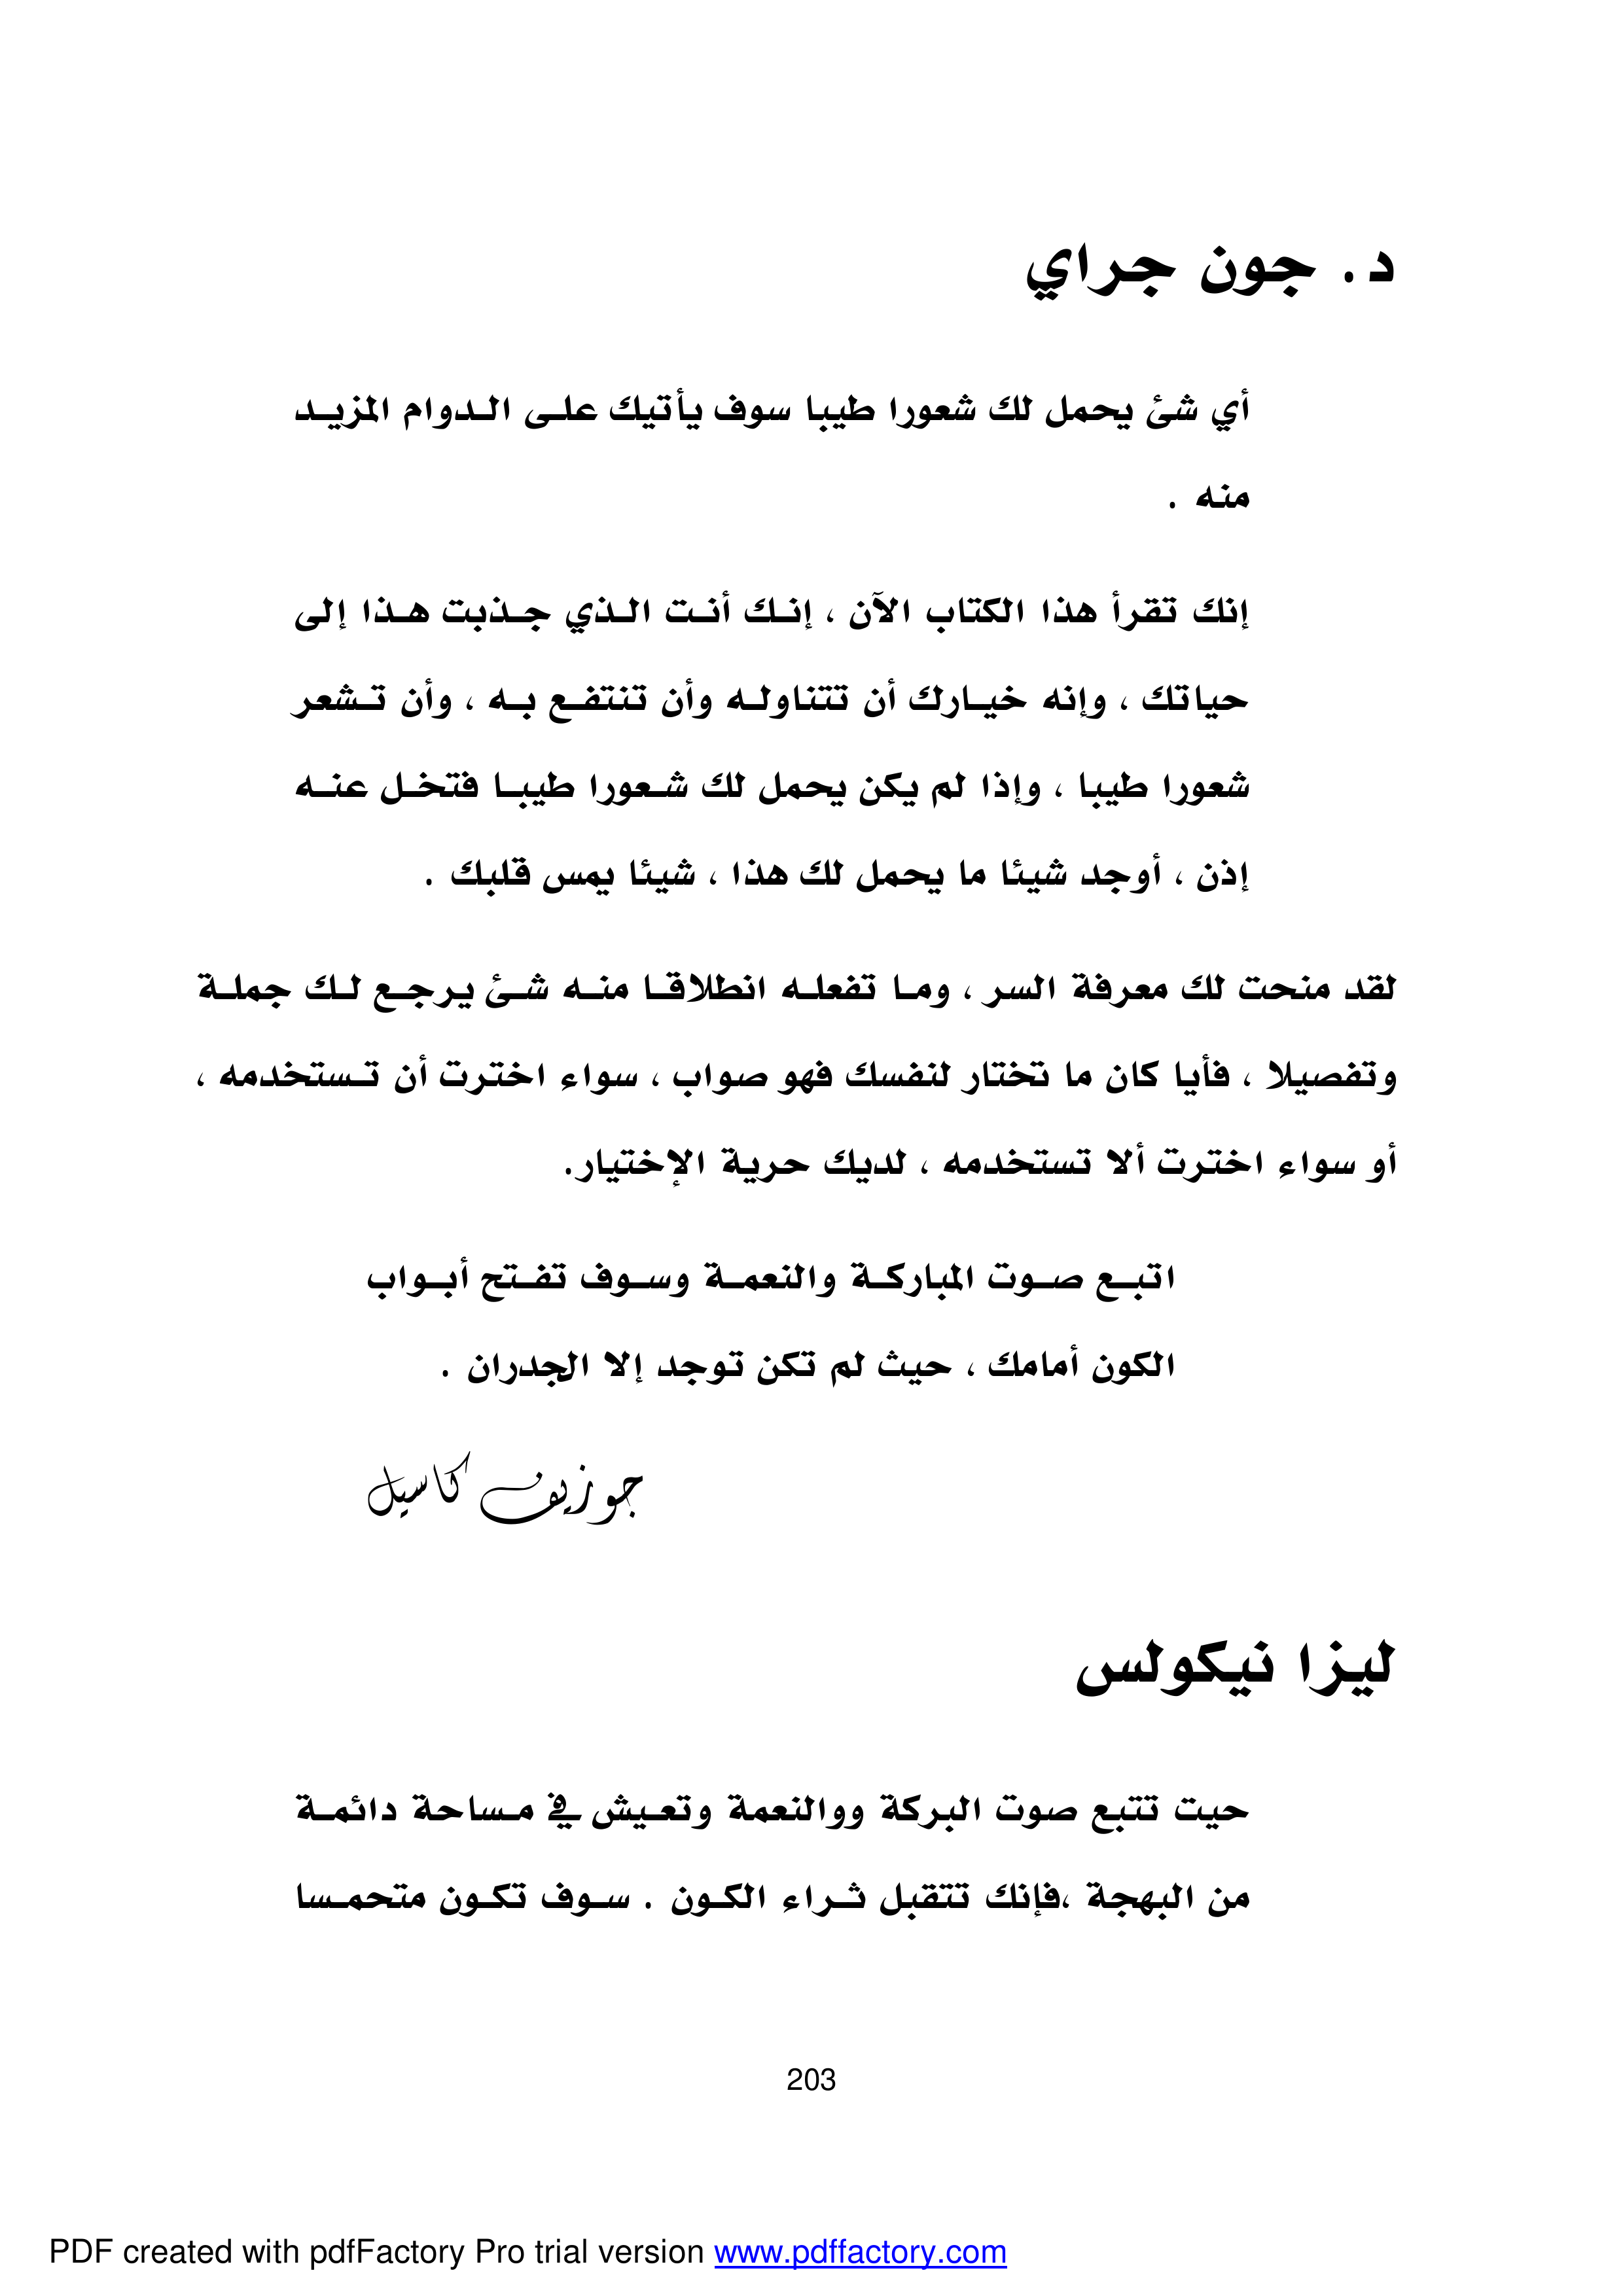 د. جون جراي
أي شئ يحمل لك شعورا طيبا سوف يأتيك على الدوام المزيد
منه .
إنك تقرأ هذا الكتاب الآن ، إنك أنت الذي جذبت هذا إلى
حياتك ، وإنه خيارك أن تتناوله وأن تنتفع به ، وأن تشعر
شعورا طيبا ، وإذا لم يكن يحمل لك شعورا طيبا فتخل عنه
إذن ، أوجد شيئا ما يحمل لك هذا ، شيئا يمس قلبك .
لقد منحت لك معرفة السر ، وما تفعله انطلاقا منه شئ يرجع لك جملة
وتفصيلا ، فأيا كان ما تختار لنفسك فهو صواب ، سواء اخترت أن تستخدمه ،
أو سواء اخترت ألا تستخدمه ، لديك حرية الإختيار.
اتبع صوت المباركة والنعمة وسوف تفتح أبواب
الكون أمامك ، حيث لم تكن توجد إلا الجدران .
جوزيف كاسيل
ليزا نيكولس
حيت تتبع صوت البركة ووالنعمة وتعيش في مساحة دائمة
من البهجة ،فإنك تتقبل ثراء الكون . سوف تكون متحمسا
203
PDF created with pdfFactory Pro trial version www.pdffactory.com